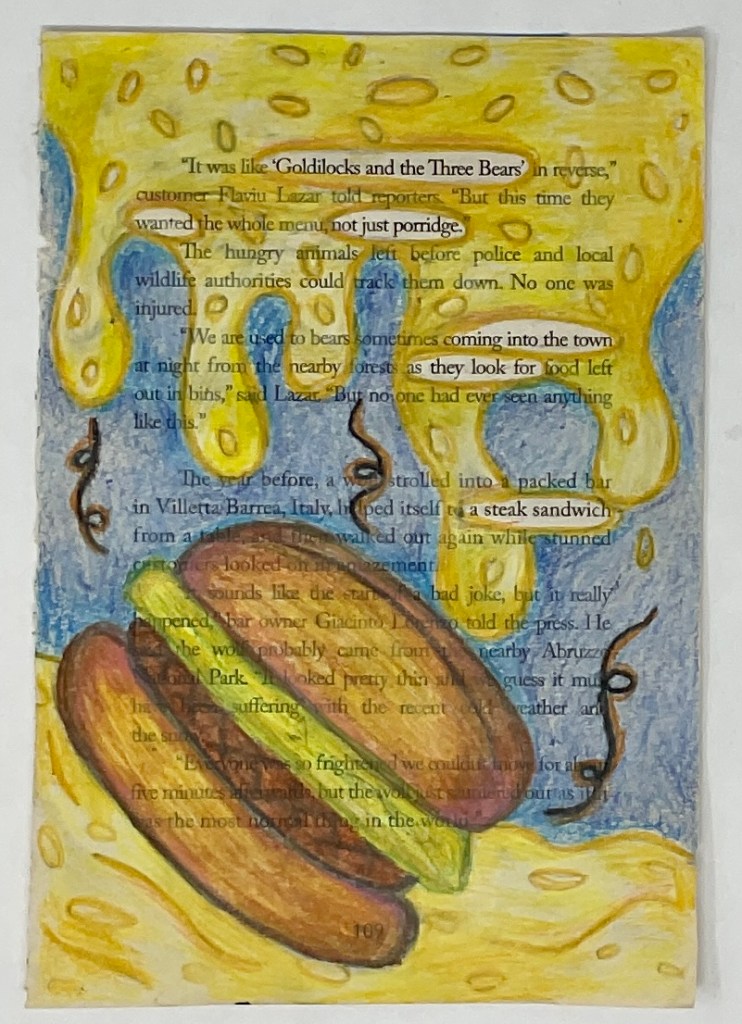 “It was like ‘Goldilocks and the Three Bears’ in reverse,”
customer Flaviu Lazar told reporters. “But this time they
wanted the whole menu, not just porridge.”
The hungry animals left before police and local
wildlife authorities could track them down. No one was
injured.
“We are used to bears sometimes coming into the town
at night from the nearby forests as they look for food left
out in bins,” said Lazar. “But no one had ever seen anything
like this.”
The year before, a wolf strolled into a packed bar
in Villetta Barrea, Italy, helped itself to a steak sandwich
from a table, and then walked out again while stunned
customers looked on in amazement.
“It sounds like the start of a bad joke, but it really
happened,” bar owner Giacinto Lorenzo told the press. He
said the wolf probably came from the nearby Abruzzo
National Park. “It looked pretty thin and we guess it must
have been suffering with the recent cold weather and
the snow.
“Everyone was so frightened we couldn’t move for about
five minutes afterwards, but the wolf just sauntered out as if it
was the most normal thing in the world.”
109